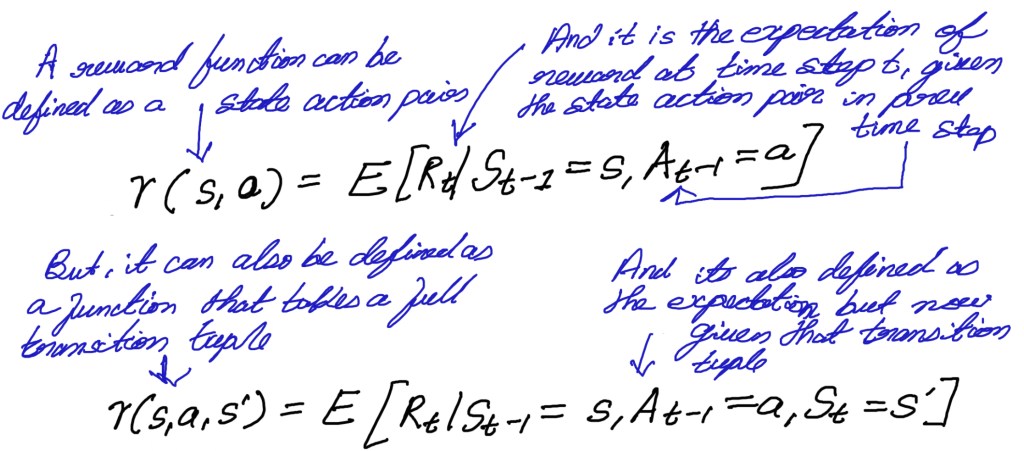 A reward function can be
defined as a state action pairs
And it is the expectation of
reward at time step t, given
the state action pair in prev
time step
r(s, a) = E[Rt|St-1 = s, At-1 = a]
But, it can also be defined as
a function that takes a full
transition tuple
And its also defined as
the expectation but now
given that transition
tuple
r(s,a,s') = E[Rt|St-1 = s, At-1 = a, St = s']